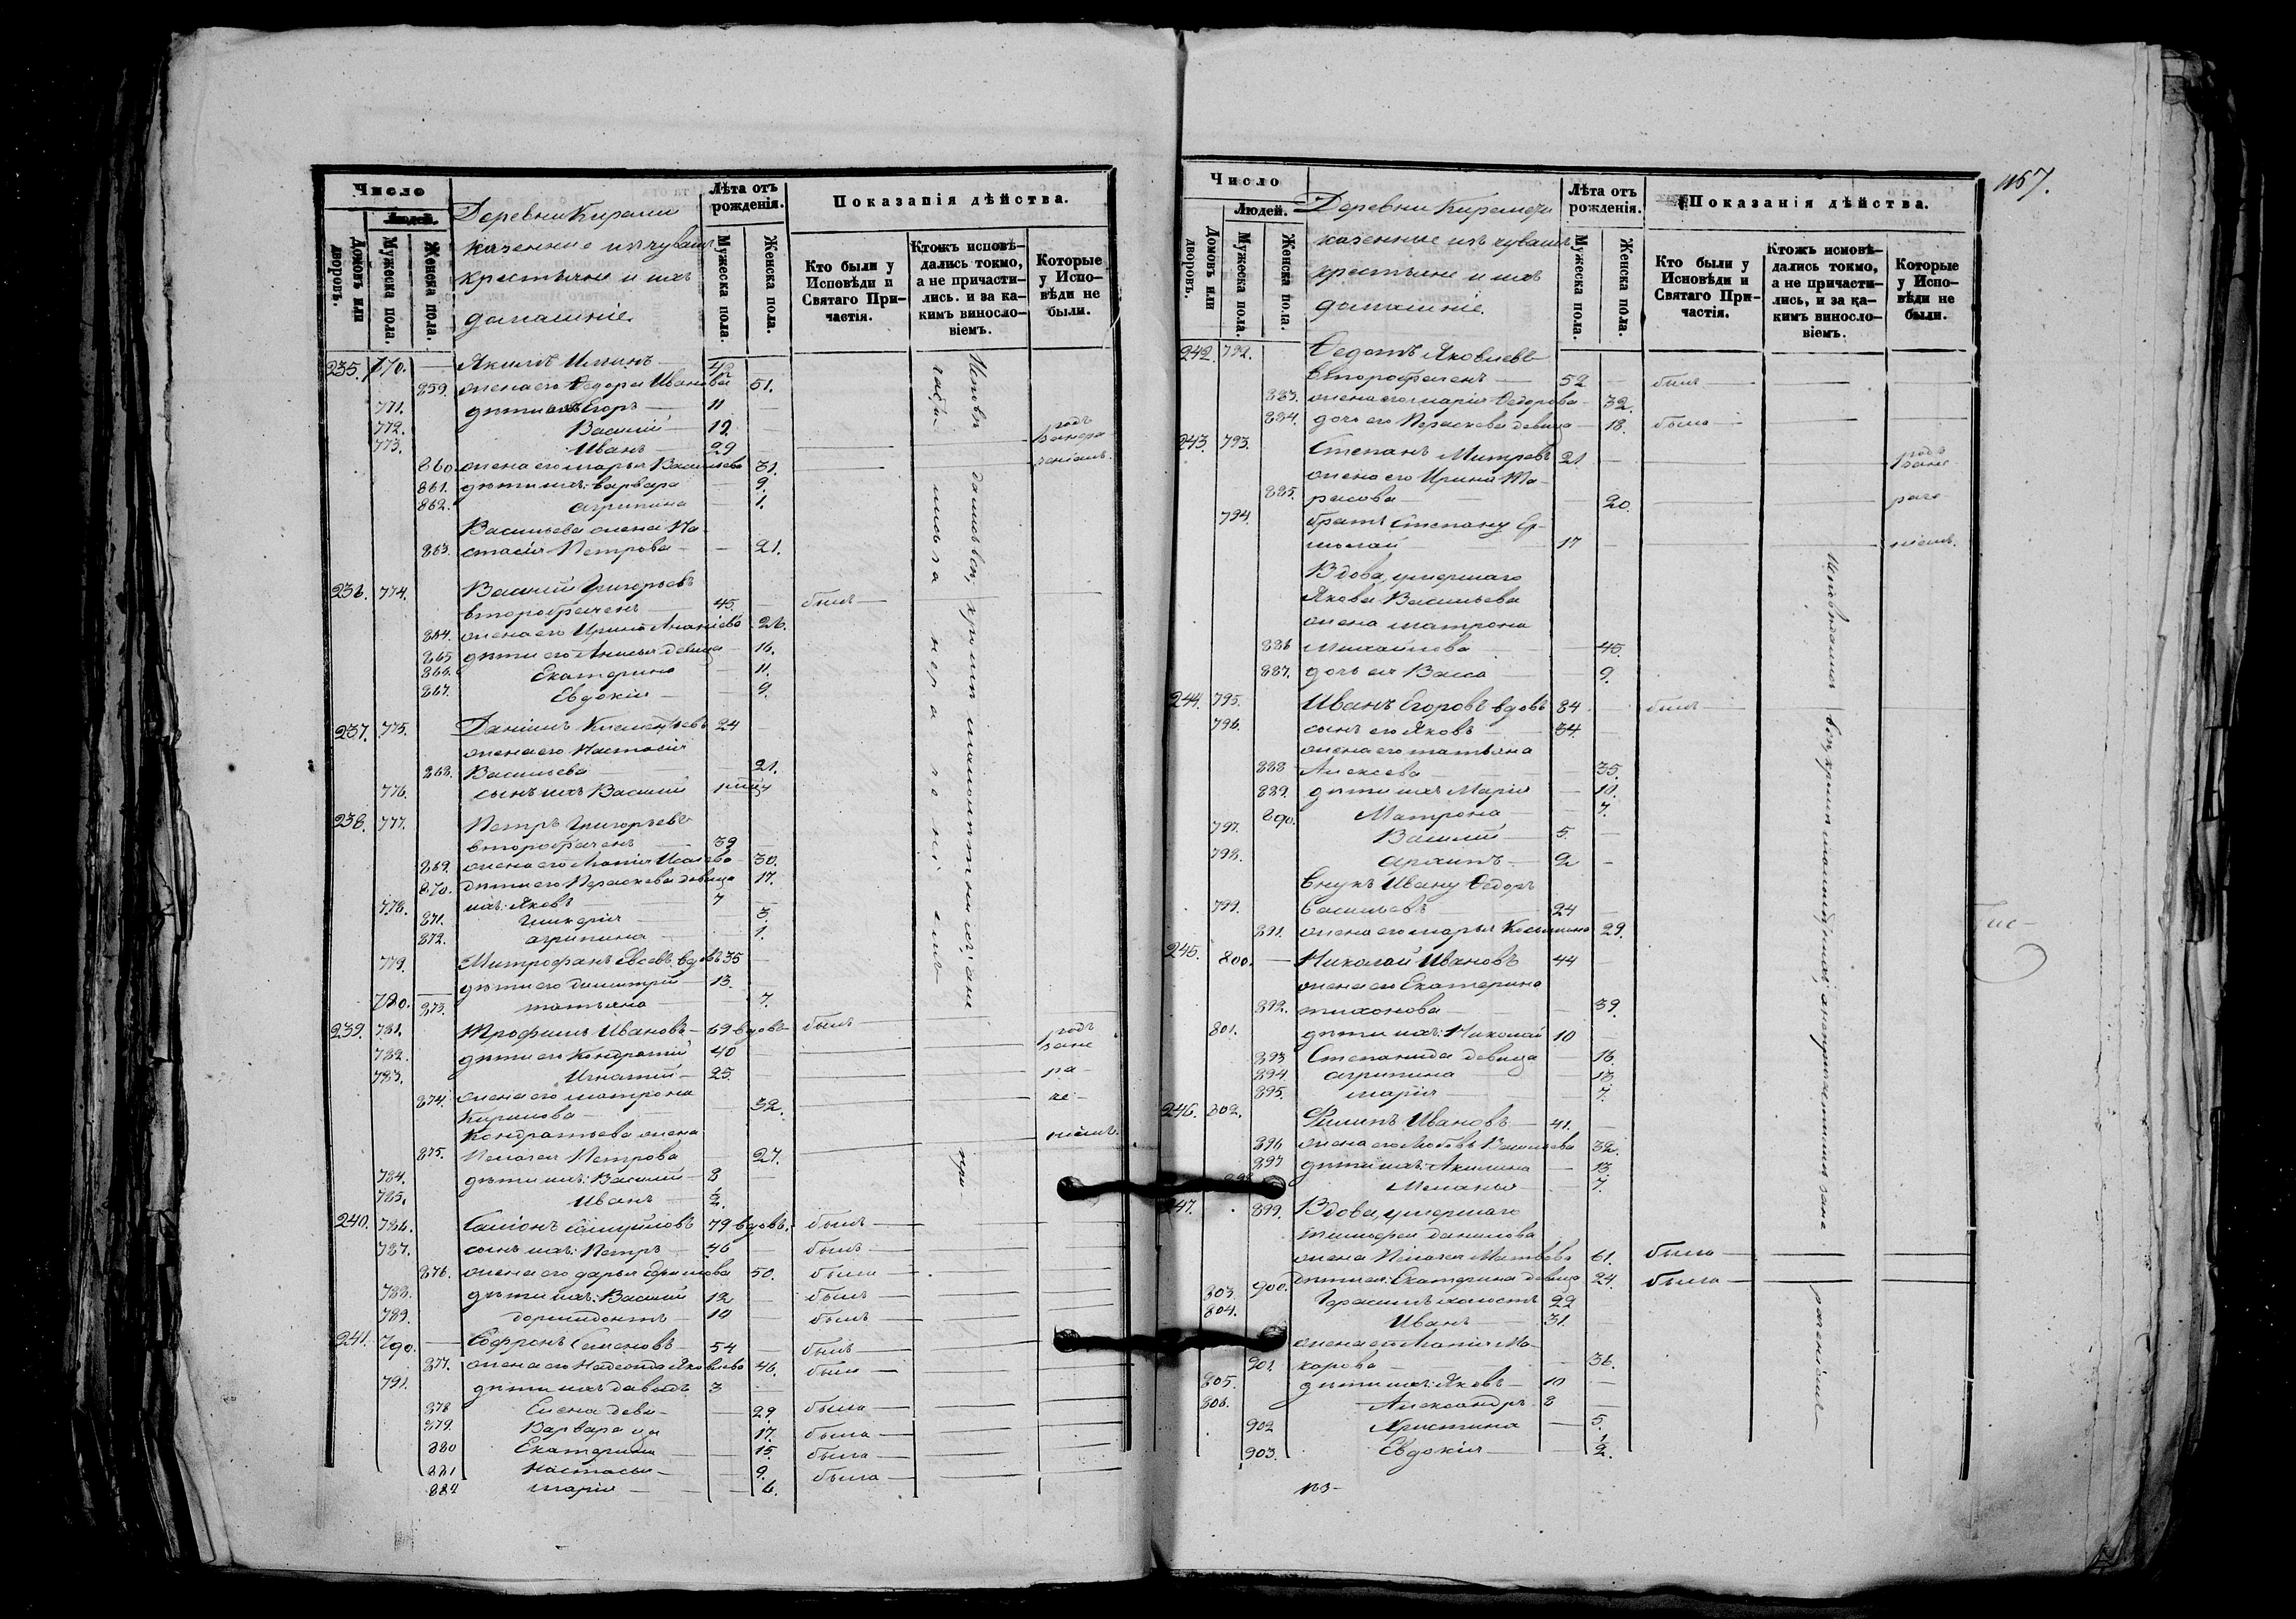 Число
Людей.
Домовъ или дворовъ.
Мужеска пола.
Женска пола.
Деревни Кирами
казенные изъ чувашъ
крестьяне и ихъ
домашніе.
Лѣта отъ рожденія.
Мужеска пола.
Женска пола.
Показанія дѣйства.
Кто были у Исповѣди и Святаго Причастія.
Ктожъ исповѣдались токмо, а не причастились. и за какимъ винословіемъ.
Которые у Исповѣди не были.
235. 770. Якимъ 42
859. жена его Ѳедора Иванова 51.
771. дѣти ихъ Егоръ 11
772. Василій 19
773. Иванъ 29
860. жена его Марья Васильева 31.
861. дѣти ихъ: Варвара 9.
862. Агрипина 1.
Васильева жена На-
863. стасія Петрова 21.
236. 774. Василій Григорьевъ
второбраченъ 45. былъ
864. жена его Ирина Ананіева 26.
865 дѣти его Анисья девица 16.
866. Екатерина 11.
867. Евдокія 9.
237. 775. Даніилъ Климентьевъ 24
жена его Настасія
868. Васильева 21.
776. сынъ ихъ Василій
238. 777. Петръ Григорьевъ
второбраченъ 39
869. жена его 30.
870. дѣти его Параскева девица 17.
778. ихъ: Яковъ 7
871. Гликерія 3.
872. Агрипина 1.
779. Митрофанъ вдовъ 35
дѣти его Димитрій 13.
780. 873. Татьяна 7.
239. 781. Трофимъ Ивановъ 69 вдовъ былъ
782. дѣти его Кондратій 40
783. Игнатій 25.
874. жена его Матрона
Кирилова 32.
Кондратьева жена
875. Пелагея Петрова 27.
784. дѣти ихъ: Василій 8
785. Иванъ 1/2.
240. 786. Самуйловъ 79 вдовъ. былъ
787. сынъ ихъ: Петръ 46 былъ
876. жена его Дарья 50. была
788. дѣти ихъ: Василій 12 былъ
789. Дормидонтъ 10 былъ
241. 790. Софронъ Семеновъ 54 былъ
877. жена его Яковлева 46. была
791. дѣти ихъ Давидъ 3
878 Елена деви- 29. была
879. Варвара ца 17. была
880 Екатерина 15. была
881 Настасья 9. была
882 Марія 6.
1167.
Число
Людей.
Домовъ или дворовъ.
Мужеска пола.
Женска пола.
Деревни
казенные изъ чувашъ
крестьяне и ихъ
домашніе.
Лѣта отъ рожденія.
Мужеска пола.
Женска пола.
Показанія дѣйства.
Кто были у Исповѣди и Святаго Причастія.
Ктожъ исповѣдались токмо, а не причастились, и за какимъ винословіемъ.
Которые у Исповѣди не были.
242. 792. Ѳедотъ Яковлевъ
второбраченъ 52 былъ
883. жена его Марія Ѳедорова 32.
884. дочь его Параскева девица 18. была
243. 793. Степанъ Митревъ 21
жена его Ирина Та-
885. расова 20.
794. братъ Степану Ер-
молай 17
Вдова, умершаго
Якова Васильева
жена Матрона
886 Михайлова 45.
887. дочь ея Васса 9.
244. 795. Иванъ Егоровъ вдовъ 84 былъ
796. сынъ его Яковъ 34.
жена его Татьяна
888 Алексева 35.
889. дѣти ихъ Марія 10.
890. Матрона 7.
797. Василій 5.
798. Архипъ 2
Внукъ Ивану Ѳедоръ
799. Васильевъ 24
891. жена его Марья 29.
245. 800. Николай Ивановъ 44
жена его Екатерина
892. Тихонова 39.
801. дѣти ихъ: Николай 10
893 Степанида девица 16.
894. Агрипина 13
895. Марія 7.
246. 802. Филипъ Ивановъ 41.
896 жена его Любовь Васильева 32.
897 дѣти ихъ: Акилина 13
898 Меланья 7.
247. 899. Вдова, умершаго
Тимофея Данилова
жена Пелагея Матвѣева 61. была
900. дѣти ея: Екатерина девица 24. была
803. Герасимъ холостъ 22
804. Иванъ 31.
жена его Ма-
901. карова 36.
805. дѣти ихъ: Яковъ 10
806. Александръ 8
902 Христина 5.
903. Евдокія 1/2.